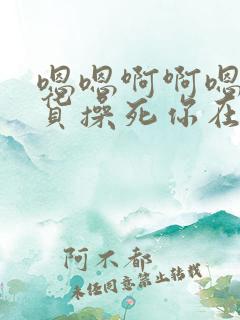 嗯嗯啊啊嗯
操死你在
阿不都
未经同意禁止转载